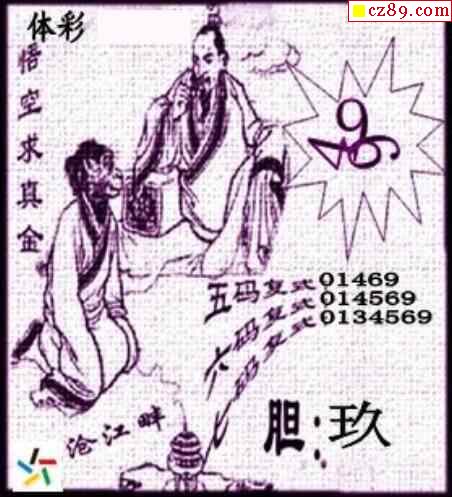 cz89.com
体彩
悟空求真金
9
4 6
五码复式01469
六码复式014569
七码复式0134569
胆：玖
沧江畔